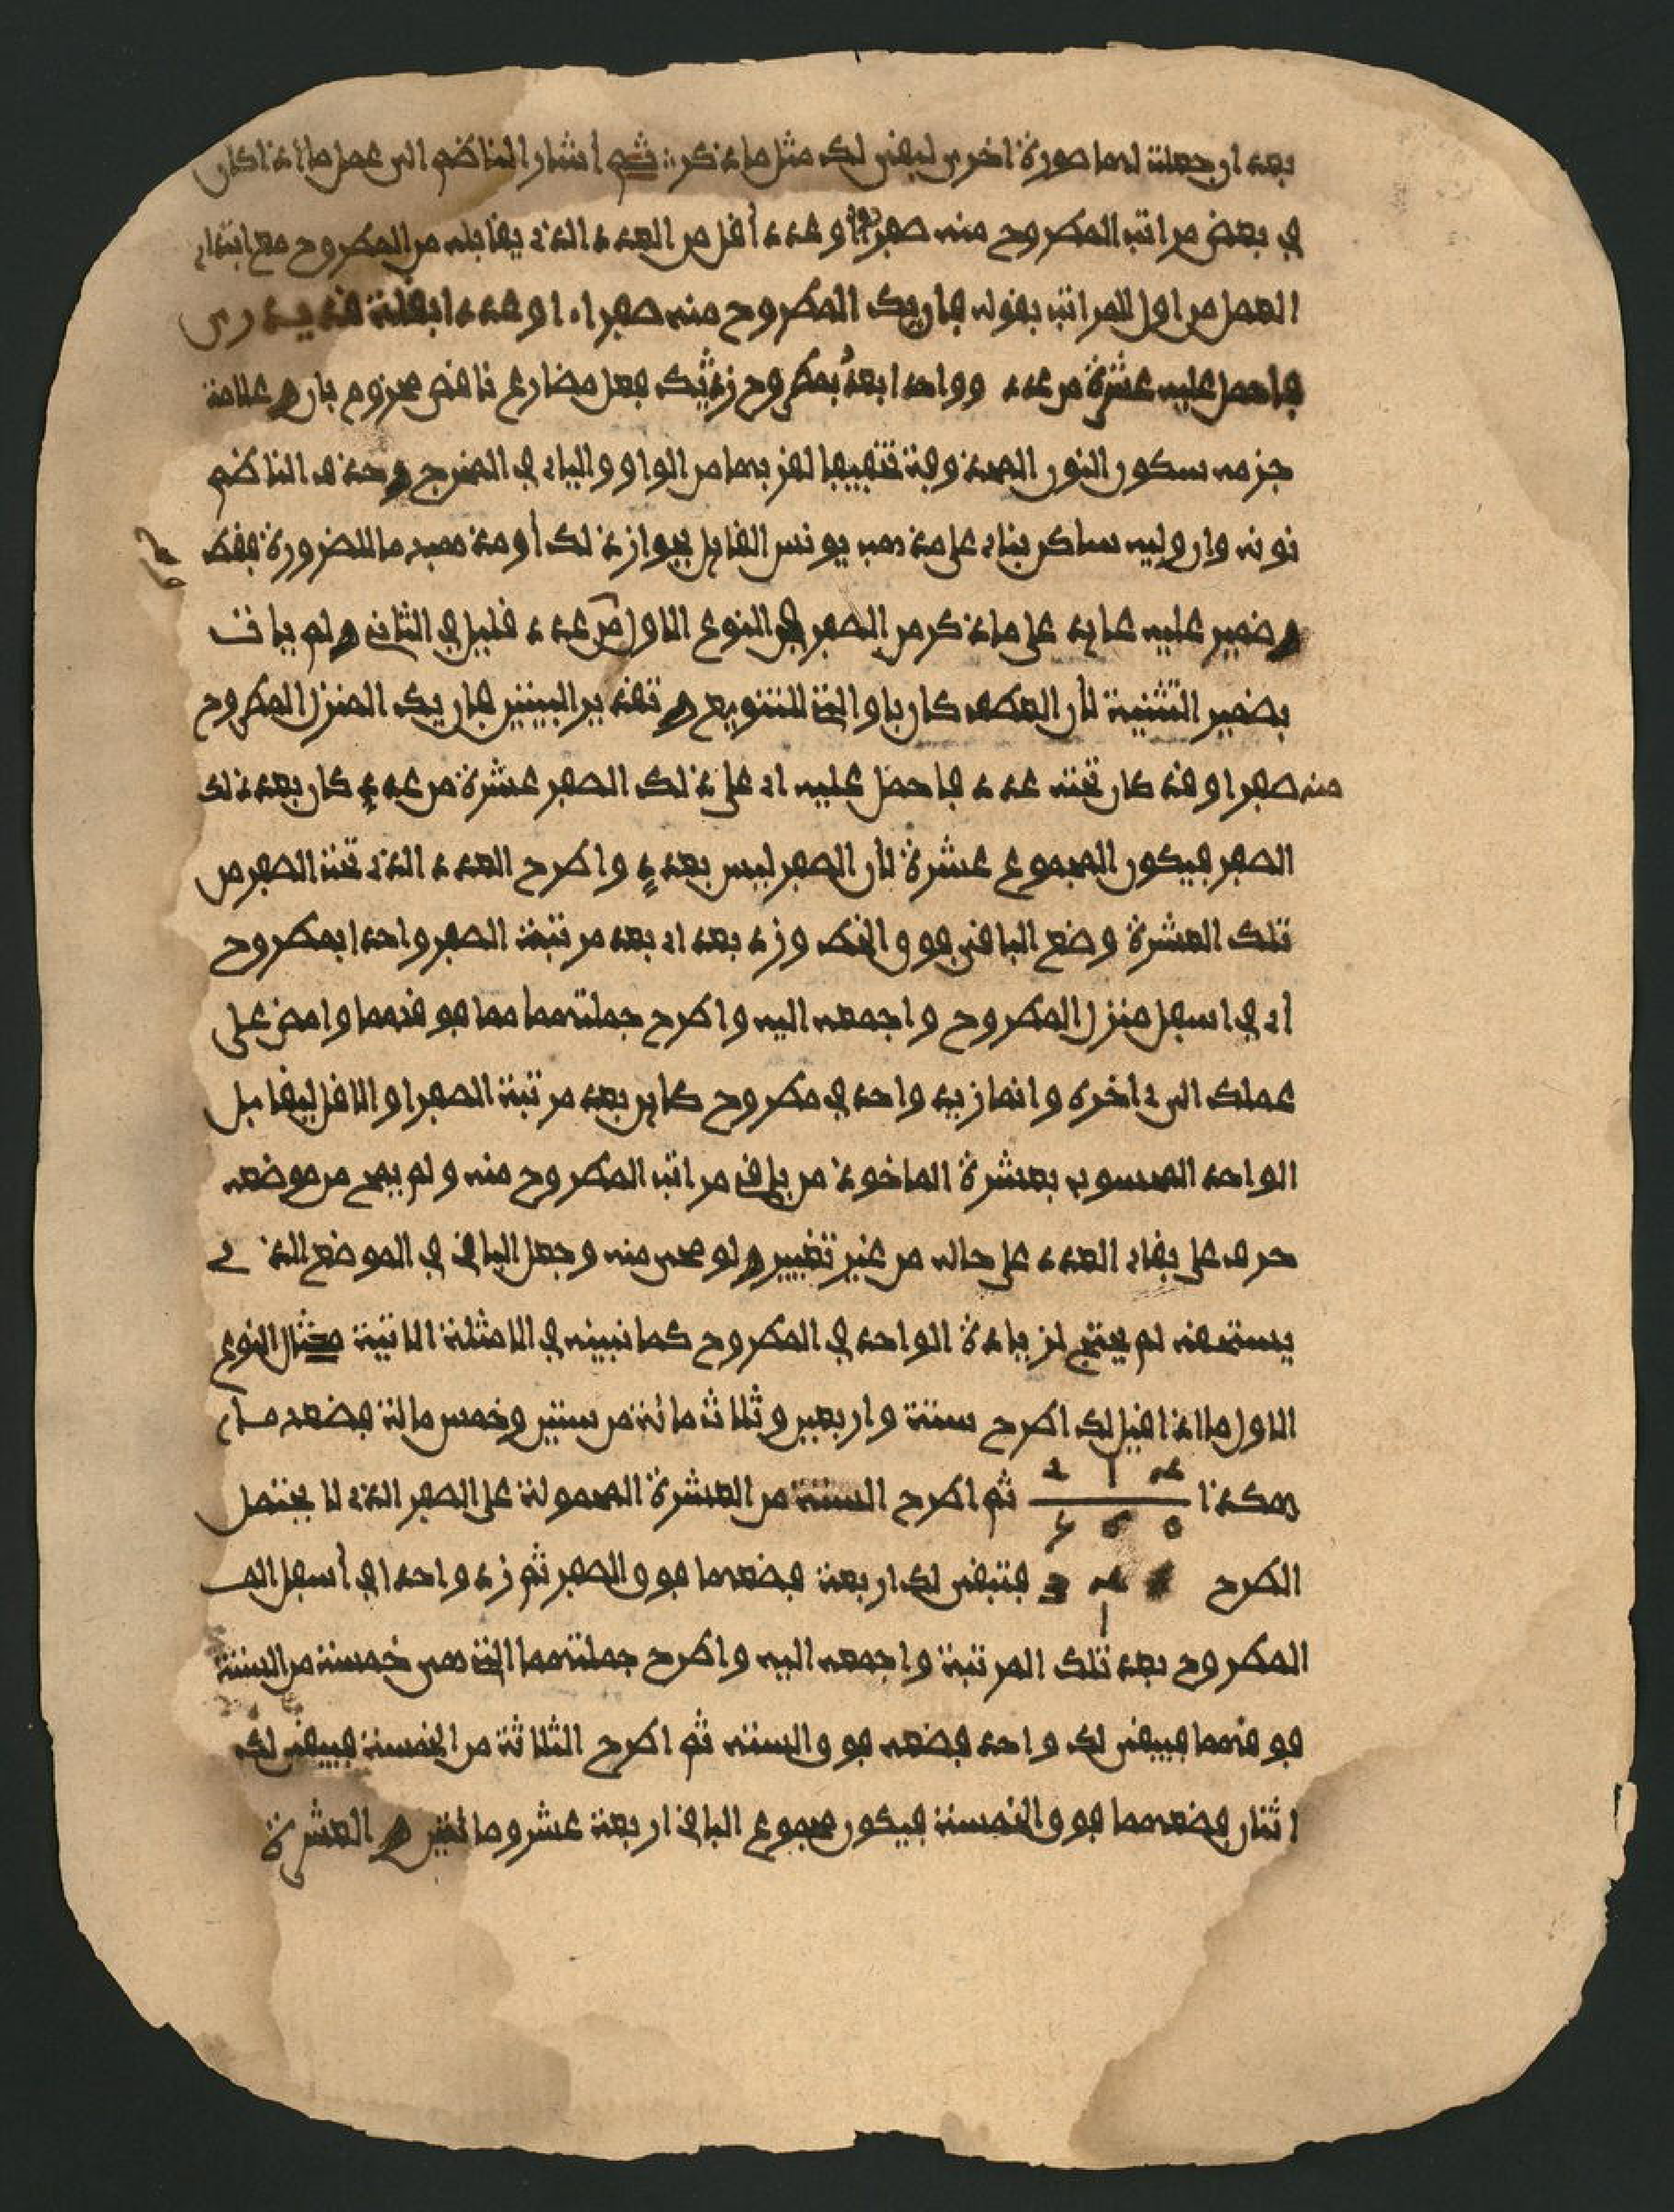 بعد ان جعلت لهما صورة اخرى ليبقى لك مثل ما ذكر :: ثم أشار الناظم الى عمل ما اذا كان
في بعض مراتب المطروح منه صفر أو عدد أقل من العدد الذي يقابله من المطروح مع ابتداء
العمل من اول المراتب بقوله فان يك المطروح منه صفرا او عددا بقلة قد
فاحمل عليه عشرة من عدد وواحدا بعد بمطروح زد يك فعل مضارع ناقص مجزوم بان وعلامة
جزمه سكون النون المحذوفة تخفيفا لقربهما من الواو والياء في المخرج وحذف الناظم
نونه وان وليه ساكن بناء على مذهب يونس القايل بجواز ذلك أو مذهب للضرورة فقط
وضمير عليه عايد على ما ذكر من الصفر في النوع الاول من عدد قليل في الثاني ولم يات
بضمير التثنية لأن العطف كان باو التي للتنويع وتقدير البيتين فان يك المنزل المطروح
منه صفرا وقد كان تحته عدد فاحمل عليه اي على ذلك الصفر عشرة من عدد كان بعد ذلك
الصفر فيكون المجموع عشرة لأن الصفر ليس بعدد واطرح العدد الذي تحت الصفر من
تلك العشرة وضع الباقي فوق الخط وزد بعد اي بعد مرتبة الصفر واحدا بمطروح
أي في اسفل منزل المطروح واجمعه اليه واطرح جملتهما مما فوقهما وامض على
عملك الى اخره وانما زيد واحد في مطروح كاين بعد مرتبة الصفر او الاقل ليقابل
الواحد المحسوب بعشرة الماخوذ من باقي مراتب المطروح منه ولم يمح من موضعه
حرف على بقاء العدد على حاله من غير تغيير ولو محى منه وجعل الباقي في الموضع الذي
يستحقه لم يحتج لزيادة الواحد في المطروح كما نبينه في الامثلة الاتية مثال النوع
الاول ما اذا قيل لك اطرح ستة واربعين وثلاث مائة من ستين وخمس مائة فضعه
هكذا ثم اطرح الستة من العشرة المحمولة على الصفر الذي لا يحتمل
الطرح فتبقى لك اربعة فضعهما فوق الصفر ثم زد واحدا في أسفل
المطروح بعد تلك المرتبة واجمعه اليه واطرح جملتهما التي هي خمسة من الستة
فوقهما فيبقى لك واحد فضعه فوق الستة ثم اطرح الثلاثة من الخمسة فيبقى لك
اثنان فضعهما فوق الخمسة فيكون مجموع الباقي اربعة عشر ومائتين والعشرة